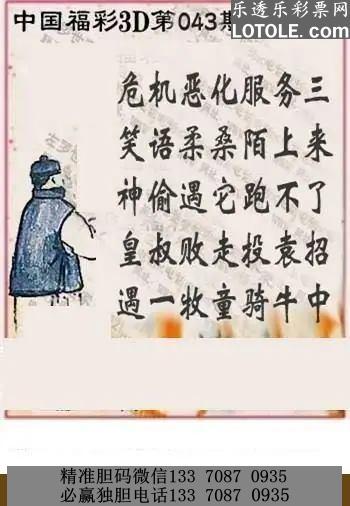 中国福彩3D第043期
乐透乐彩票网
WWW.LOTOLE.COM
危机恶化服务三
笑语柔桑陌上来
神偷遇它跑不了
皇叔败走投袁招
遇一牧童骑牛中
精准胆码微信133 7087 0935
必赢独胆电话133 7087 0935